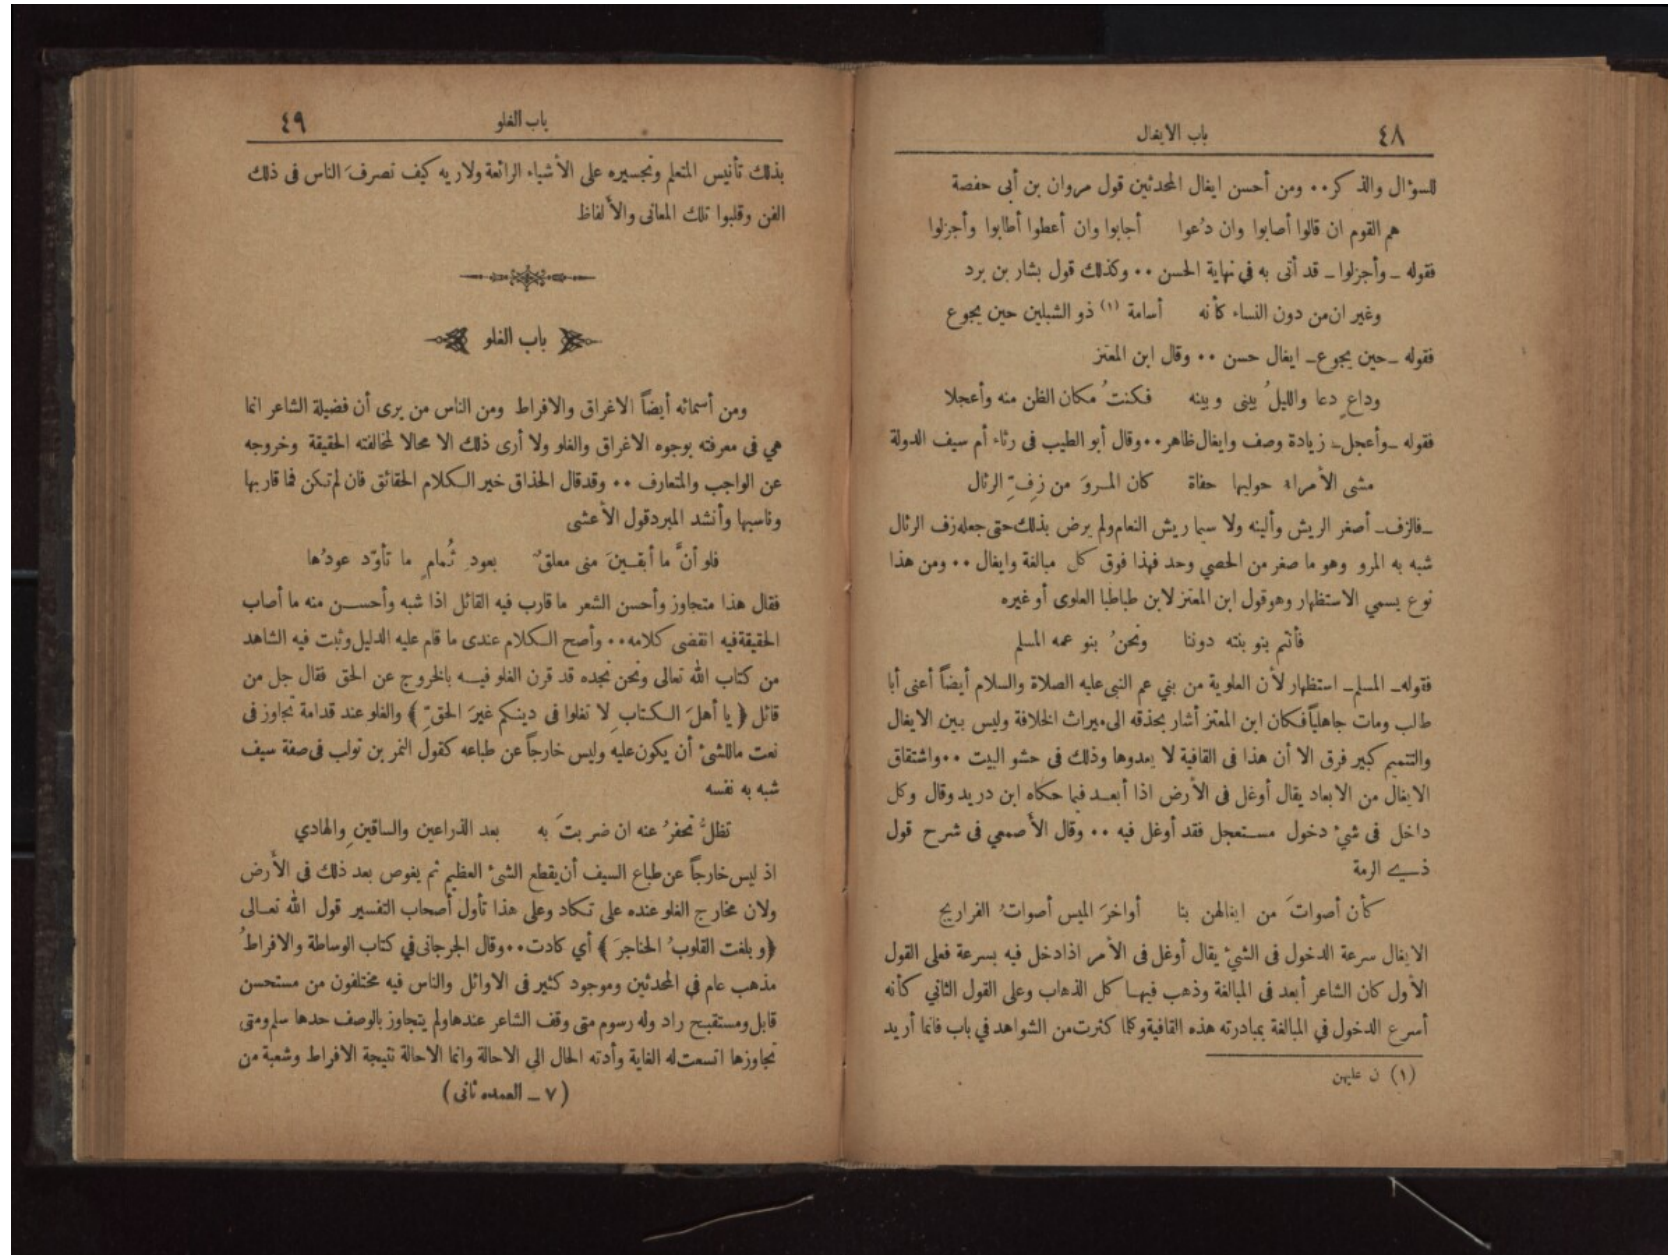 ٤٨
باب الايغال
للسؤال والذكر ٠٠ ومن أحسن ايغال المحدثين قول مروان بن أبى حفصة
هم القوم ان قالوا أصابوا وان دُعوا أجابوا وان أعطوا أطابوا وأجزلوا
فقوله ـ وأجزلوا ـ قد أتى به في نهاية الحسن ٠٠ وكذلك قول بشار بن برد
وغير ان من دون النساء كأنه أسامة (١) ذو الشبلين حين يجوع
فقوله ـ حين يجوع ـ ايغال حسن ٠٠ وقال ابن المعتز
وداعٍ دعا والليلُ بينى وبينه فكنتُ مكان الظن منه وأعجلا
فقوله ـ وأعجل ـ زيادة وصف وايغال ظاهر ٠٠ وقال أبو الطيب فى رثاء أم سيف الدولة
مشى الأمراء حوليها حفاة كان المروَ من زِفِّ الرئال
ـ فالزف ـ أصغر الريش وألينه ولا سيما ريش النعام ولم يرض بذلك حتى جعله زف الرئال
شبه به المرو وهو ما صغر من الحصي وحد فهذا فوق كل مبالغة وايغال ٠٠ ومن هذا
نوع يسمي الاستظهار وهو قول ابن المعتز لابن طباطبا العلوى أو غيره
فأنتم بنو بنته دوننا ونحنُ بنو عمه المسلم
فقوله ـ المسلم ـ استظهار لأن العلوية من بني عم النبى عليه الصلاة والسلام أيضاً أعنى أبا
طالب ومات جاهلياً فكان ابن المعتز أشار بحذقه الى ميراث الخلافة وليس بين الايغال
والتتميم كبير فرق الا أن هذا فى القافية لا يعدوها وذلك فى حشو البيت ٠٠ واشتقاق
الايغال من الابعاد يقال أوغل فى الأرض اذا أبعد فيما حكاه ابن دريد وقال وكل
داخل فى شئ دخول مستعجل فقد أوغل فيه ٠٠ وقال الأصمعي فى شرح قول
ذي الرمة
كأن أصواتَ من ايغالهن بنا أواخرَ الميس أصواتُ الفراريج
الايغال سرعة الدخول فى الشئ يقال أوغل فى الأمر اذا دخل فيه بسرعة فعلى القول
الأول كان الشاعر أبعد فى المبالغة وذهب فيها كل الذهاب وعلى القول الثاني كأنه
أسرع الدخول في المبالغة بمبادرته هذه القافية وكلما كثرت من الشواهد في باب فانما أريد
(١) ن عليهن
باب الغلو
٤٩
بذلك تأنيس المتعلم وتجسيره على الأشياء الرائعة ولاريه كيف تصرفَ الناس فى ذلك
الفن وقلبوا تلك المعانى والألفاظ
باب الغلو
ومن أسمائه أيضاً الاغراق والافراط ومن الناس من يرى أن فضيلة الشاعر انما
هي فى معرفته بوجوه الاغراق والغلو ولا أرى ذلك الا محالا لمخالفته الحقيقة وخروجه
عن الواجب والمتعارف ٠٠ وقد قال الحذاق خير الكلام الحقائق فان لم تكن فما قاربها
وناسبها وأنشد المبرد قول الأعشى
فلو أنَّ ما أبقينَ منى معلقٌ بعود ثُمام ما تأوّد عودُها
فقال هذا متجاوز وأحسن الشعر ما قارب فيه القائل اذا شبه وأحسن منه ما أصاب
الحقيقة فيه انقضى كلامه ٠٠ وأصح الكلام عندى ما قام عليه الدليل وثبت فيه الشاهد
من كتاب الله تعالى ونحن نجده قد قرن الغلو فيه بالخروج عن الحق فقال جل من
قائل ﴿ يا أهلَ الكتابِ لا تغلوا فى دينكم غيرَ الحقِّ ﴾ والغلو عند قدامة تجاوز فى
نعت ما للشئ أن يكون عليه وليس خارجاً عن طباعه كقول النمر بن تولب فى صفة سيف
شبه به نفسه
تظلُّ تحفرُ عنه ان ضربتَ به بعد الذراعين والساقينِ والهادي
اذ ليس خارجاً عن طباع السيف أن يقطع الشئ العظيم ثم يغوص بعد ذلك فى الأرض
ولان مخارج الغلو عنده على تكاد وعلى هذا تأول أصحاب التفسير قول الله تعالى
﴿ وبلغت القلوبُ الحناجرَ ﴾ أي كادت ٠٠ وقال الجرجانى في كتاب الوساطة والافراطُ
مذهب عام في المحدثين وموجود كثير فى الاوائل والناس فيه مختلفون من مستحسن
قابل ومستقبح راد وله رسوم متى وقف الشاعر عندها ولم يتجاوز بالوصف حدها سلم ومتى
تجاوزها اتسعت له الغاية وأدته الحال الي الاحالة وانما الاحالة نتيجة الافراط وشعبة من
(٧ ـ العمده ثانى)